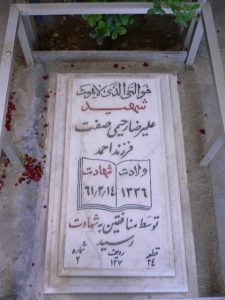 هوالحی الذی لایموت
شهید
علیرضا رحیمی صفت
فرزند احمد
ولادت شهادت
۱۳۳۶ ۶۱/۲/۱۴
توسط منافقین به شهادت
رسید
قطعه ردیف شماره
۲۴ ۱۳۷ ۲